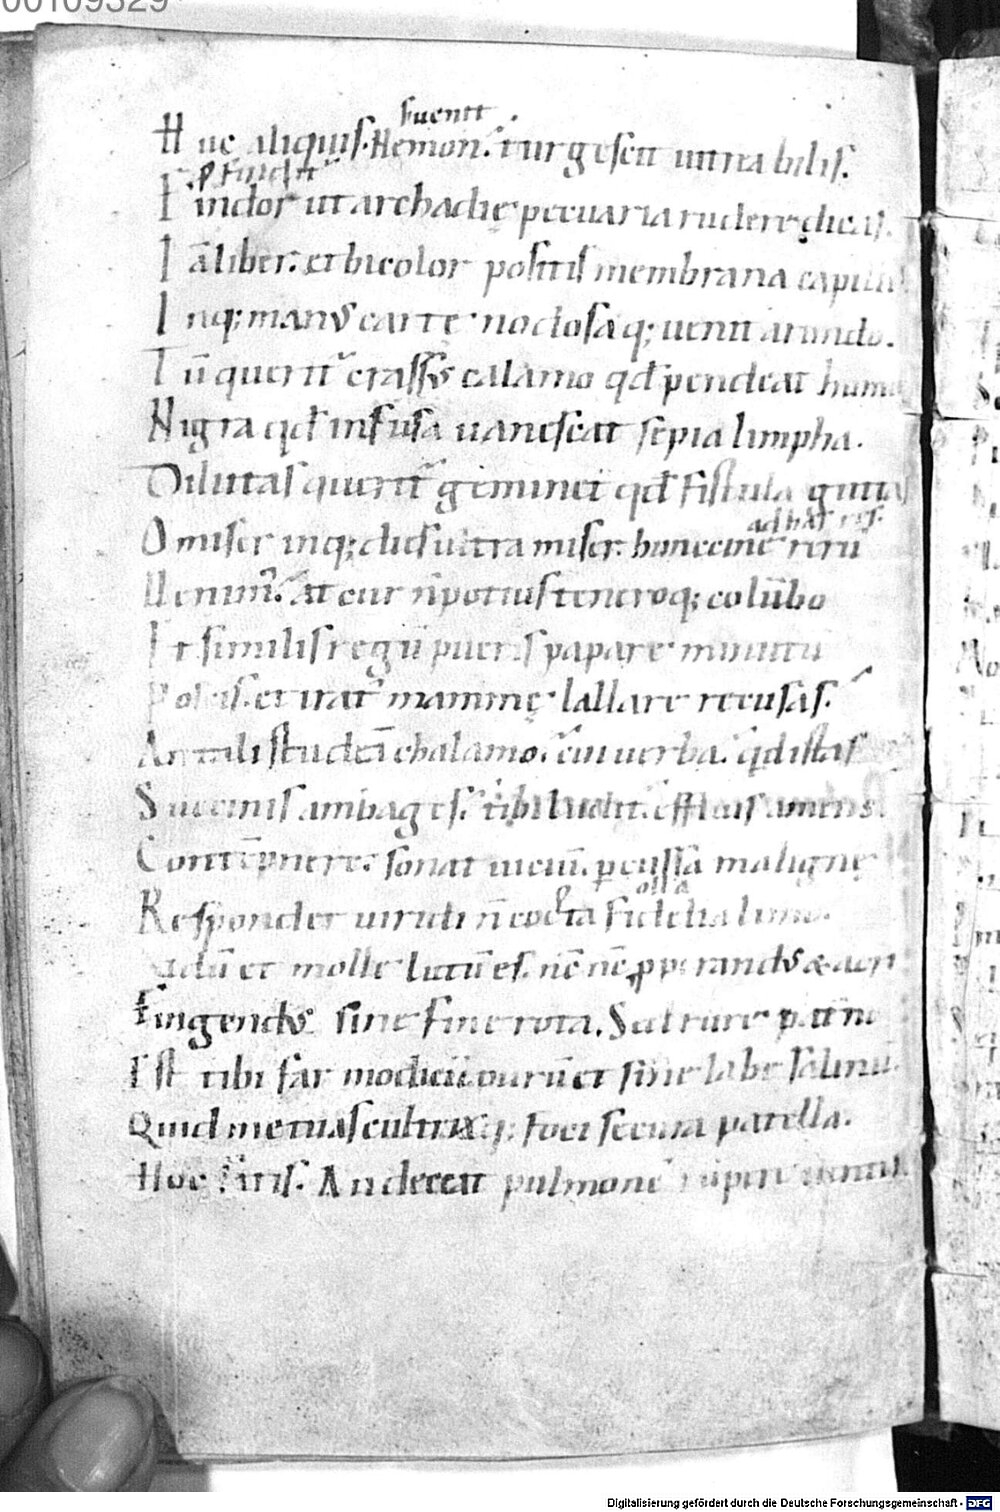 00109329
fuerit
Huc aliquis. Nemon. turgescit uitrea bilis.
Findor ut archadię pecuaria rudere dicas.
Iā liber. et bicolor positis membrana capillis
Inq; manus carte nodosaq; uenit arundo.
Tū querit᷑ crassus calamo qđ pendeat humor
Nigra qđ infusa uanescat sepia limpha.
Dilutas querit᷑ geminet qđ fistula guttas
ad has res.
O miser inq; dies ultra miser. huncine rerū
Uenim᷒. at cur n̄ potius teneroq; colūbo
Et similis regū pueris papare minutū
Poscis. et irat᷒ mammę lallare recusas.
An tali studeā chalamo. cui uerba. qd istas
Succinis ambages. tibi luditur. effluis amens.
Contēpnere. sonat uiciū. percussa maligne
olla
Respondet uiridi n̄ cocta fidelia limo.
udū et molle lutū es. nc̄ nc̄ ꝓperandus & acri
Fingendus sine fine rota. Sed rure paterno
Est tibi far modicū purū et sine labe salinū.
Quid metuas cultrixq; foci secura patella.
Hoc satis. An deceat pulmonē rūpere uentis.
Digitalisierung gefördert durch die Deutsche Forschungsgemeinschaft - DFG